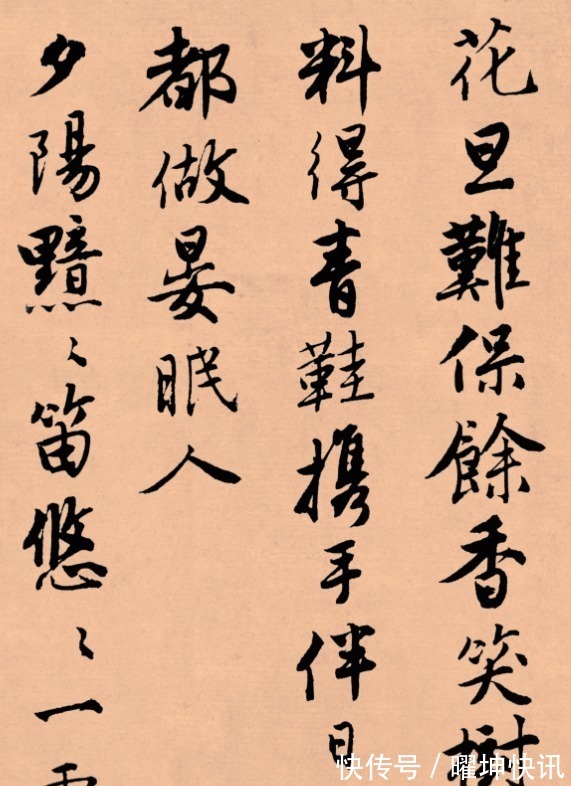 花旦難保餘香笑樹
料得青鞋携手伴日
都做晏眠人
夕陽黯〻笛悠〻一
快传号 / 曜坤快讯